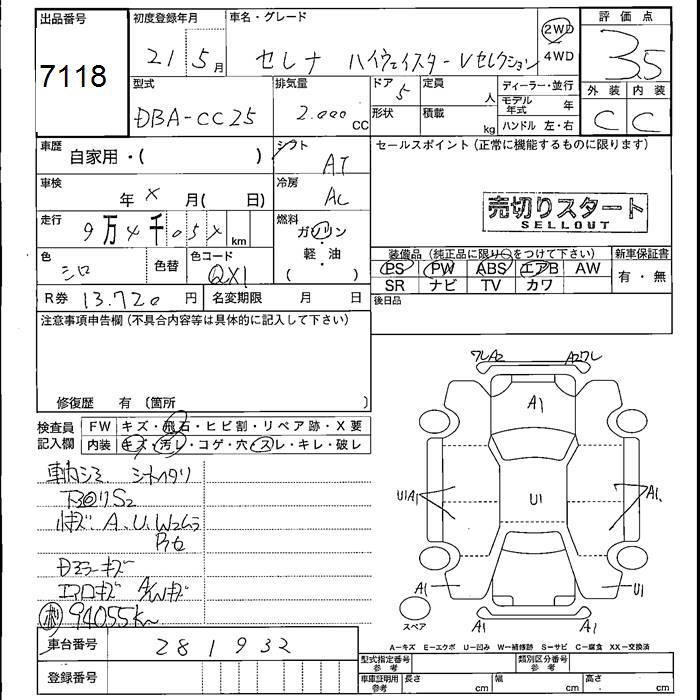 出品番号
7118
初度登録年月
21 5月
車名・グレード
セレナ ハイウェイスターVセレクション
2WD
4WD
評価点
3.5
外装 内装
C C
型式
DBA-CC25
排気量
2.000cc
ドア 5
形状
定員 人
積載 kg
ディーラー・並行
モデル年式 年
ハンドル 左・右
車歴
自家用・( )
シフト
AT
セールスポイント (正常に機能するものに限ります)
車検
年 X 月( 日)
冷房
AC
売切りスタート
SELLOUT
走行
9万4千05X km
燃料
ガソリン
・
軽・油
( )
色
シロ
色替
色コード
QX1
装備品 (純正品に限り○をつけて下さい)
PS PW ABS エアB AW
SR ナビ TV カワ
新車保証書
有・無
R券 13.720円
名変期限 月 日
後日品
注意事項申告欄(不具合内容等は具体的に記入して下さい)
修復歴 有 (箇所 )
検査員
記入欄
FW キズ・飛石・ヒビ割・リペア跡・X要
内装 キズ・汚レ・コゲ・穴・スレ・キレ・破レ
車内シミ シートヘタリ
下回りS2
キズ A.U.Wコムラ
Dミラーキズ
エアロキズ A/Wキズ
94055km
ワレA2
A2ワレ
A1
U1A1
U1
A1
A1
U1
スペア
A1
A1
A=キズ E=エクボ U=凹み W=補修跡 S=サビ C=腐食 XX=交換済
車台番号
281932
登録番号
型式指定番号
参考
類別区分番号
参考
車庫証明用
参考
長さ cm
幅 cm
高さ cm